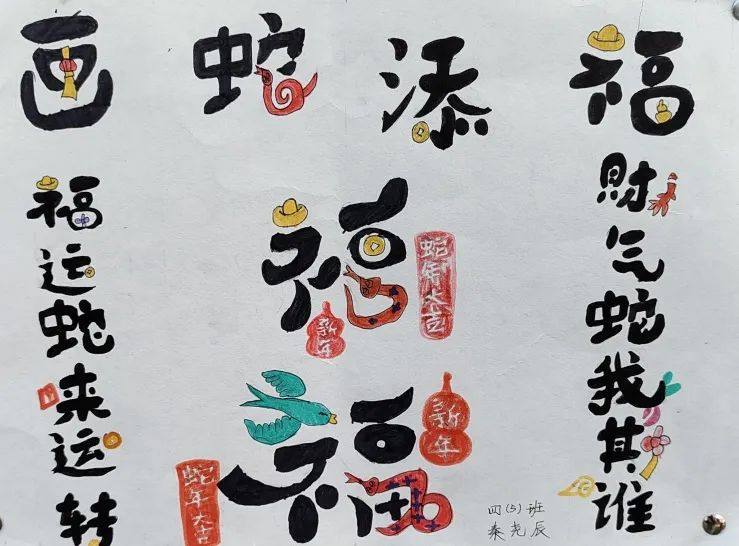 画蛇添福
福运蛇来运转
財气蛇我其谁
福
蛇年大吉
新年
福
新年
蛇年大吉
四(5)班
秦尧辰